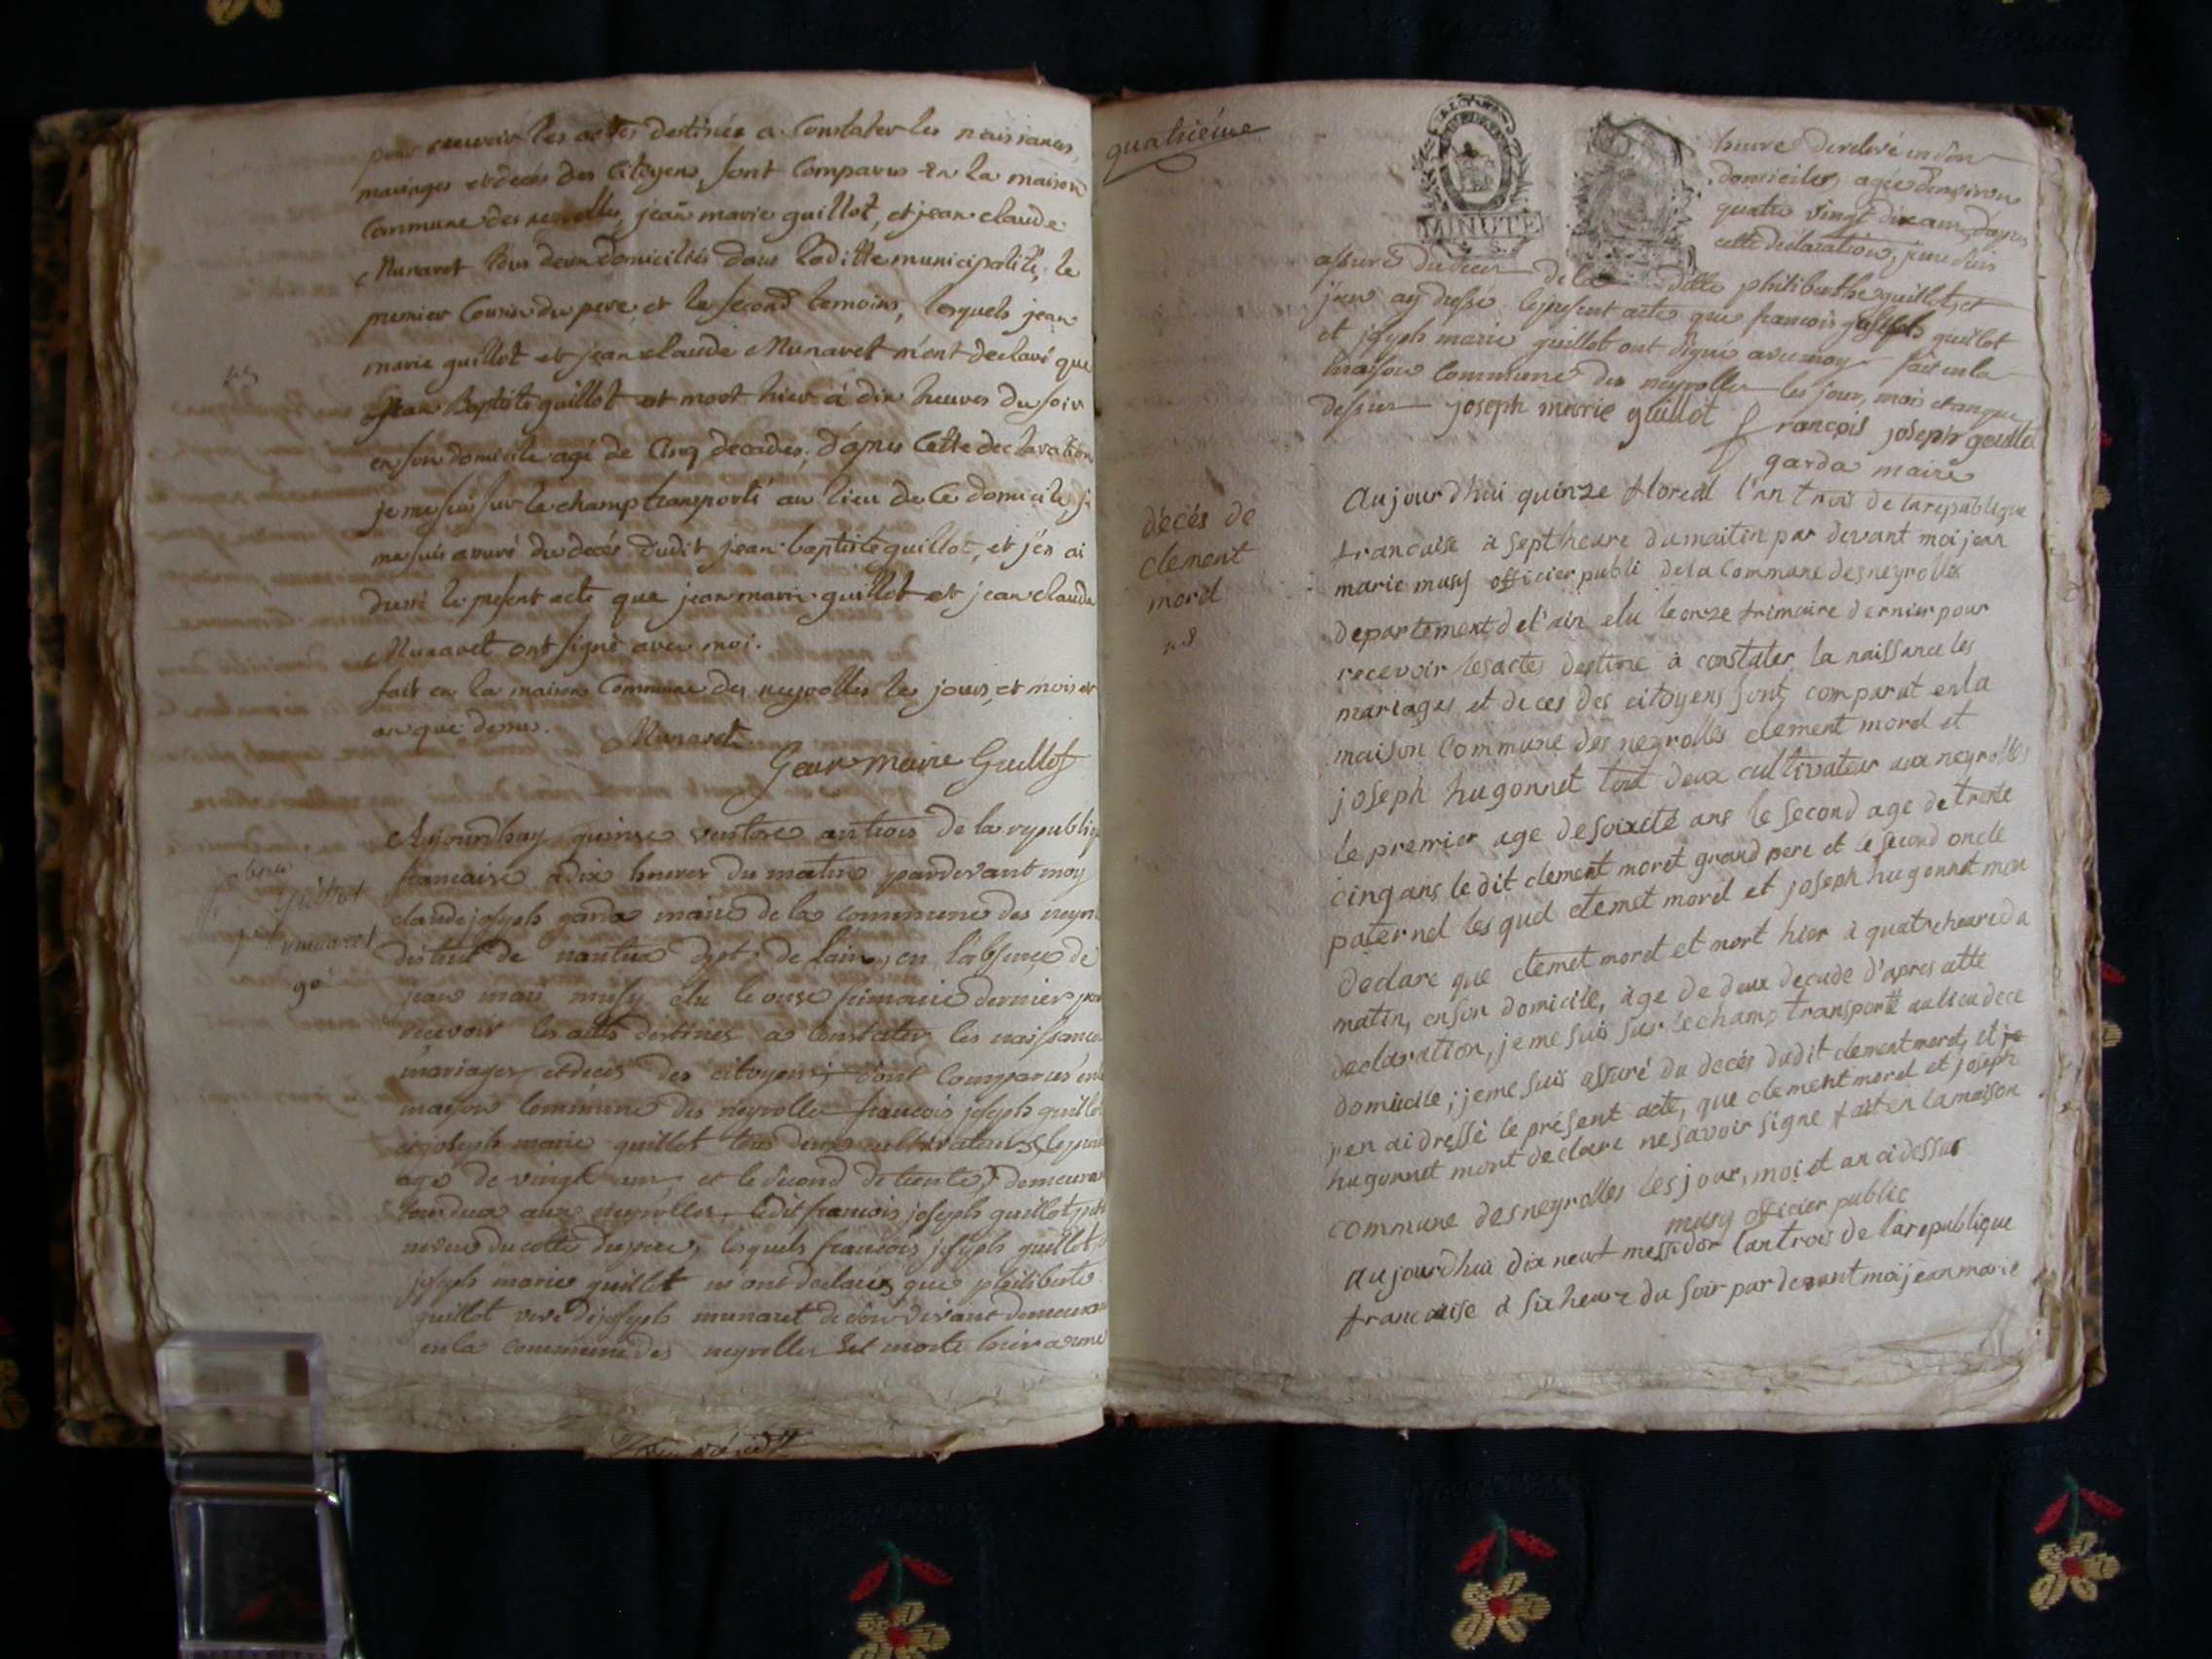 pour recevoir les actes destinés a Constater les naissances,
mariages et decés des Citoyens, sont Comparus en la maison
Commune des neyrolles, jean marie guillot, et jean claude
Munaret tous deux domiciliés dans laditte municipalité, le
premier Cousin du pere et le second temoins, lesquels jean
marie guillot et jean claude Munaret m'ont declaré que
jean Baptiste guillot est mort hier à dix heures du soir
en son domicile agé de Cinq decades, d'aprés Cette declaration
je me suis sur le champ transporté au lieu de Ce domicile, je
me suis assuré du decés dudit jean baptiste guillot, et j'en ai
dressé le present acte que jean marie guillot et jean claude
Munaret ont signé avec moi.
fait en la maison Commune des neyrolles les jours, et mois et
an que dessus.
Munaret
Jean marie Guillot
Aujourdhuy quinze ventose an trois de la republiq
francaise a dix heures du matin pardevant moy
claude joseph garda maire de la commune des neyro
district de nantua dept. de lain, en l'absence de
jean marie musy elu le onze frimaire dernier pou
recevoir les actes destinés a constater les naissances
mariages et deces des citoyens, sont Comparus en
maison commune des neyrolles francois joseph guillot
et joseph marie guillot tous deux cultivateurs, le pre
agé de vingt ans et le second de trente, demeuran
tous deux aux neyrolles, ledit francois joseph guillot
neveu du cotté du pere, lesquels francois joseph guillot
joseph marie guillot m'ont declarés que philiberte
guillot veve de joseph munaret de son vivant demeurant
en la commune des neyrolles est morte hier a une
guillot
munaret
quatrieme
MINUTE
heure de relevé en son
domiciles, agée d'environ
quatre vingt dix ans, d'apres
cette declaration, je me suis
assuré du deces de la ditte philiberthe guillot, et
j'en ay dressé le present acte que francois joseph guillot
et joseph marie guillot ont signé avec moy fait en la
maison Commune des neyrolles les jour, mois et an que
dessus joseph marie guillot françois joseph guillot
garda maire
décés de
clement
morel
n 8
aujourdhui quinze floreal l'an trois de la republique
francaise a sept heure du maitin par devant moi jean
marie musy officier publi de la commune des neyrolles
departement de l'ain elu le onze frimaire dernier pour
recevoir les actes destine à constater la naissance les
mariages et deces des citoyens sont comparut en la
maison commune des neyrolles clement morel et
joseph hugonnet tout deux cultivateur aux neyrolles
le premier age de soixcte ans le second age de trente
cinq ans le dit clement moret grand pere et le second oncle
paternel les quel clemet morel et joseph hugonnet mon
declare que clemet morel et mort hier à quatre heure du
matin, en son domicile, àge de deux decade d'apres cette
declaration, je me suis sur le champ transporté au lieu de ce
domicile; je me suis assuré du decés dudit clement morel, et je
j'en ai dressé le présent acte, que clement morel et joseph
hugonnet mont declare ne savoir signe fait en la maison
commune des neyrolles les jour, moi et an ci dessus
musy officier public
aujourdhui dix neuf messidor lan trois de la republique
francaise à six heure du soir par devant moi jean marie